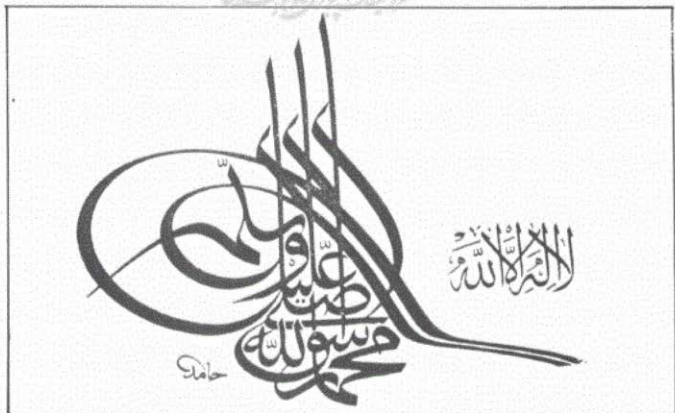 لا اله الا الله
محمد رسول الله
صلى الله عليه وسلم
حامد